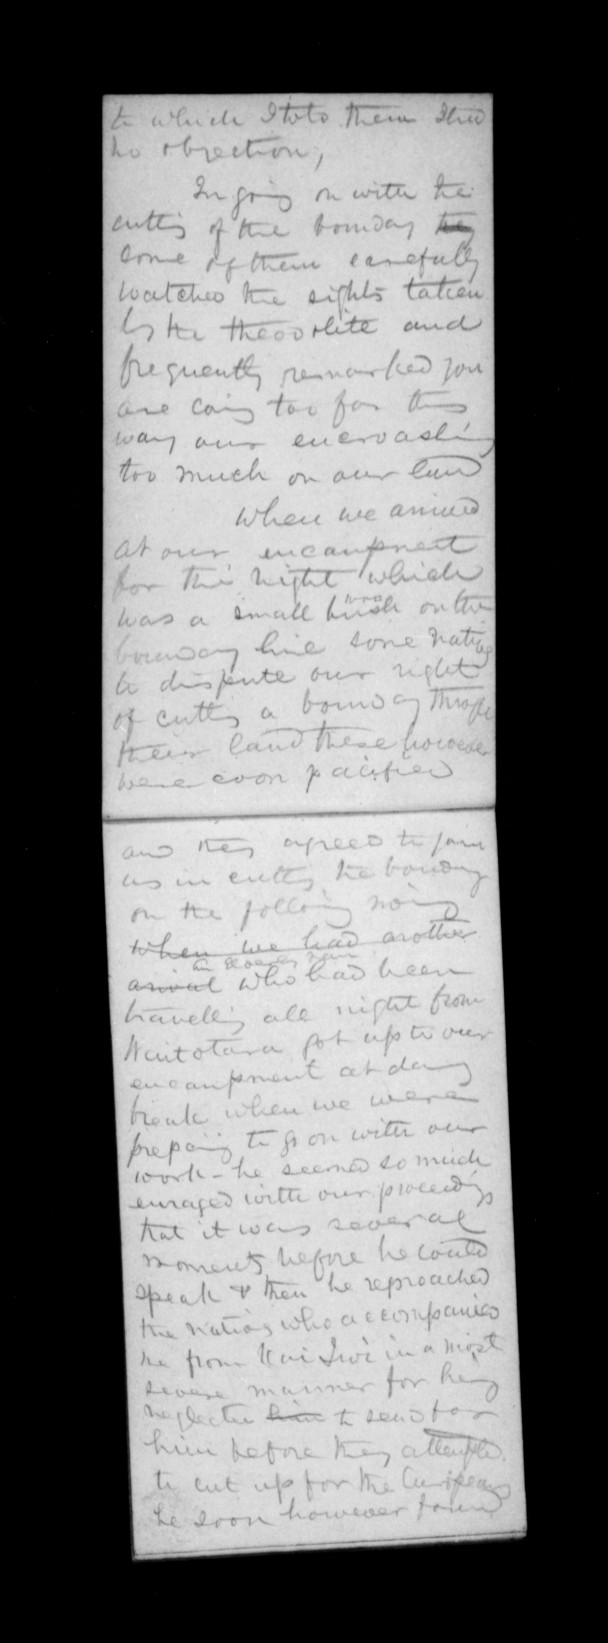 to which I told them I had
no objection,
In going on with the
cutting of the bounday they
some of them carefully
watched the sights taken
by the theodolite and
frequently remarked you
are coing too far this
way our encroashing
too much on our land
When we arrived
at our encampment
for the night which
was a small bush on the
bounday line some natives
to dispute our right
of cutting a bounday through
their land these however
were soon pacified
and they agreed to join
us in cutting the bounday
on the folloing moing
when we had another
an elderly man
arival who had been
travelling all night from
Waitotara got up to our
encampment at day
break when we were
prepaing to go on with our
work - he seemed so much
enraged with our proceedings
that it was several
moments before he could
speak & then he reproached
the natives who accompanied
me from Kai Iwi in a most
severe manner for being
neglected him to send for
him before they attempted
to cut up for the Europeans
he soon however found